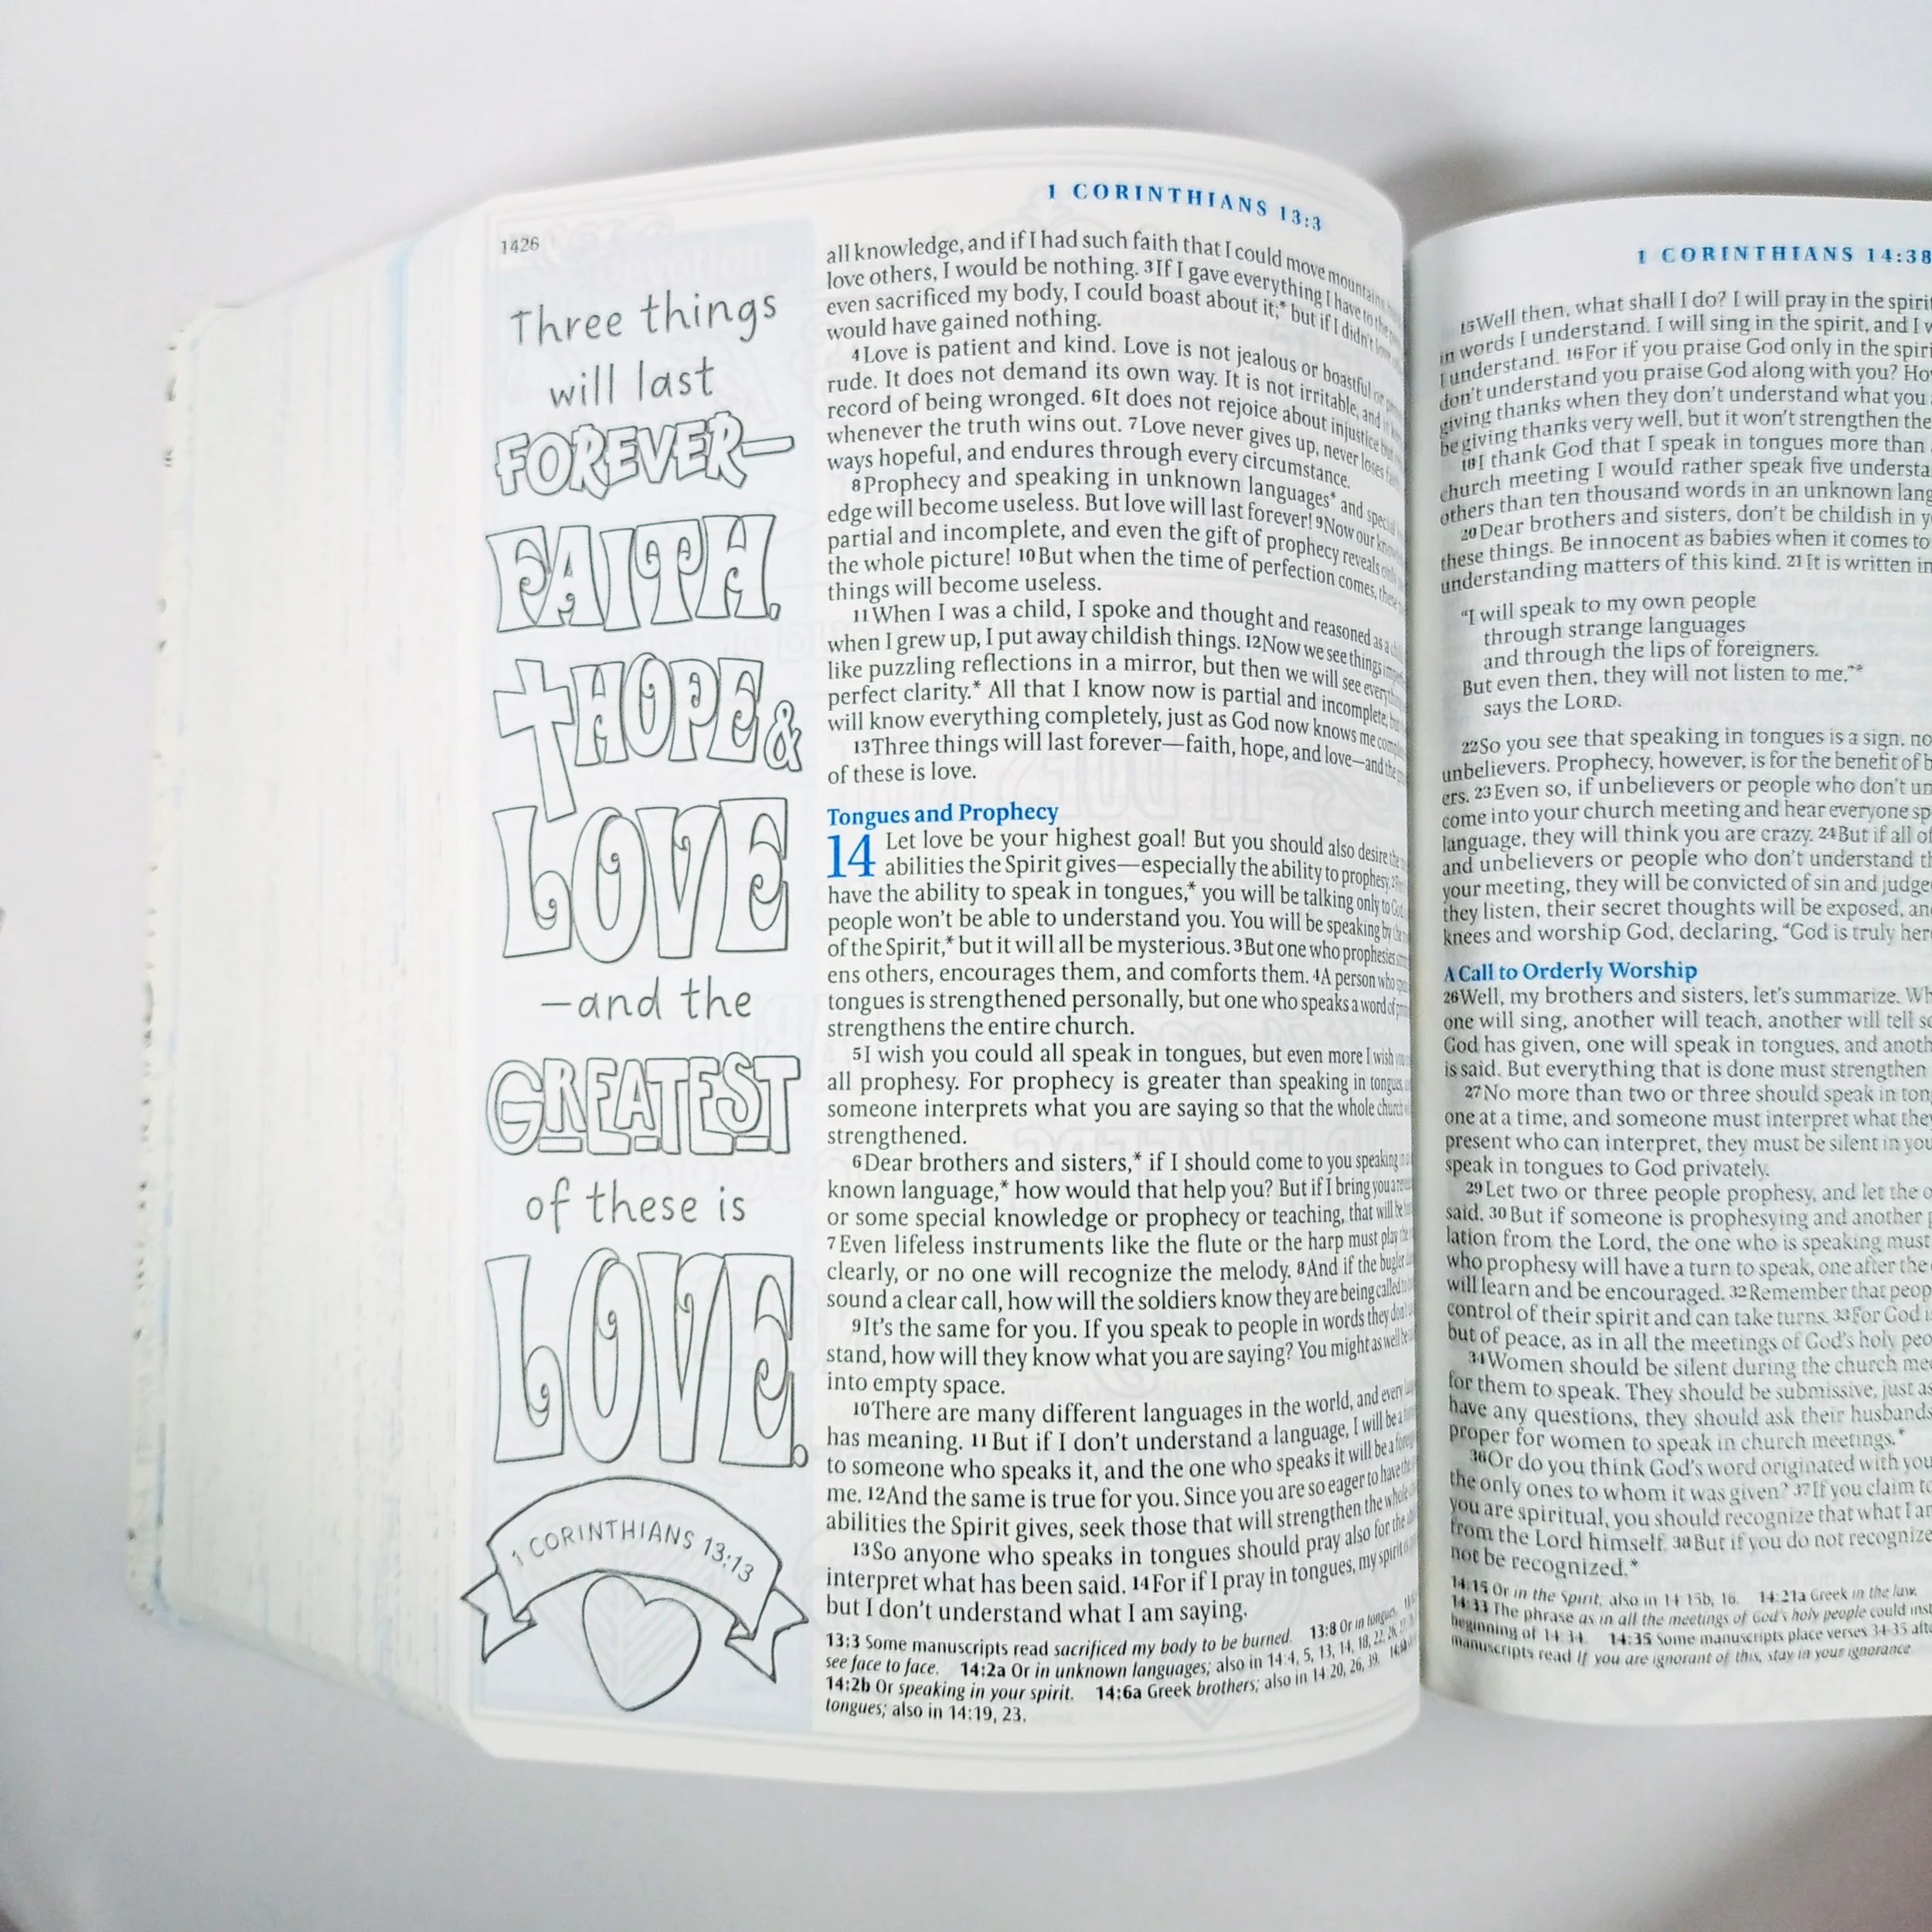 1426
Three things
will last
FOREVER—
FAITH,
HOPE &
LOVE
—and the
GREATEST
of these is
LOVE.
1 CORINTHIANS 13:13
1 CORINTHIANS 13:3
all knowledge, and if I had such faith that I could move mountains,
love others, I would be nothing. 3If I gave everything I have to the
even sacrificed my body, I could boast about it;* but if I didn't love
would have gained nothing.
4Love is patient and kind. Love is not jealous or boastful or
rude. It does not demand its own way. It is not irritable, and it
record of being wronged. 6It does not rejoice about injustice but
whenever the truth wins out. 7Love never gives up, never loses
ways hopeful, and endures through every circumstance.
8Prophecy and speaking in unknown languages* and special
edge will become useless. But love will last forever! 9Now our
partial and incomplete, and even the gift of prophecy reveals only
the whole picture! 10But when the time of perfection comes, these
things will become useless.
11When I was a child, I spoke and thought and reasoned as a
when I grew up, I put away childish things. 12Now we see things
like puzzling reflections in a mirror, but then we will see everything
perfect clarity.* All that I know now is partial and incomplete,
will know everything completely, just as God now knows me
13Three things will last forever—faith, hope, and love—and the
of these is love.
Tongues and Prophecy
14 Let love be your highest goal! But you should also desire the
abilities the Spirit gives—especially the ability to prophesy.
have the ability to speak in tongues,* you will be talking only to God,
people won't be able to understand you. You will be speaking by the
of the Spirit,* but it will all be mysterious. 3But one who prophesies
ens others, encourages them, and comforts them. 4A person who
tongues is strengthened personally, but one who speaks a word of
strengthens the entire church.
5I wish you could all speak in tongues, but even more I wish
all prophesy. For prophecy is greater than speaking in tongues,
someone interprets what you are saying so that the whole church
strengthened.
6Dear brothers and sisters,* if I should come to you speaking
known language,* how would that help you? But if I bring you
or some special knowledge or prophecy or teaching, that will be
7Even lifeless instruments like the flute or the harp must play the
clearly, or no one will recognize the melody. 8And if the bugler
sound a clear call, how will the soldiers know they are being called
9It's the same for you. If you speak to people in words they don't
stand, how will they know what you are saying? You might as well be
into empty space.
10There are many different languages in the world, and every
has meaning. 11But if I don't understand a language, I will be a
to someone who speaks it, and the one who speaks it will be a
me. 12And the same is true for you. Since you are so eager to have the
abilities the Spirit gives, seek those that will strengthen the whole
13So anyone who speaks in tongues should pray also for the
interpret what has been said. 14For if I pray in tongues, my spirit
but I don't understand what I am saying.
13:3 Some manuscripts read sacrificed my body to be burned. 13:8 Or in tongues.
see face to face. 14:2a Or in unknown languages; also in 14:4, 5, 13, 14, 18, 22,
14:2b Or speaking in your spirit. 14:6a Greek brothers; also in 14:20, 26, 39.
tongues; also in 14:19, 23.
1 CORINTHIANS 14:38
15Well then, what shall I do? I will pray in the
in words I understand. I will sing in the spirit, and I
I understand. 16For if you praise God only in the
don't understand you praise God along with you?
giving thanks when they don't understand what you
be giving thanks very well, but it won't strengthen the
18I thank God that I speak in tongues more than
church meeting I would rather speak five
others than ten thousand words in an unknown
20Dear brothers and sisters, don't be childish in
these things. Be innocent as babies when it comes to
understanding matters of this kind. 21It is written in
“I will speak to my own people
through strange languages
and through the lips of foreigners.
But even then, they will not listen to me,”*
says the LORD.
22So you see that speaking in tongues is a sign,
unbelievers. Prophecy, however, is for the benefit of
ers. 23Even so, if unbelievers or people who don't
come into your church meeting and hear everyone
language, they will think you are crazy. 24But if all of
and unbelievers or people who don't understand
your meeting, they will be convicted of sin and
they listen, their secret thoughts will be exposed,
knees and worship God, declaring, “God is truly
A Call to Orderly Worship
26Well, my brothers and sisters, let's summarize.
one will sing, another will teach, another will tell
God has given, one will speak in tongues, and
is said. But everything that is done must strengthen
27No more than two or three should speak in
one at a time, and someone must interpret what they
present who can interpret, they must be silent in
speak in tongues to God privately.
29Let two or three people prophesy, and let the
said. 30But if someone is prophesying and another
lation from the Lord, the one who is speaking must
who prophesy will have a turn to speak, one after the
will learn and be encouraged. 32Remember that
control of their spirit and can take turns. 33For God
but of peace, as in all the meetings of God's holy
34Women should be silent during the church
for them to speak. They should be submissive, just as
have any questions, they should ask their husbands
proper for women to speak in church meetings.*
36Or do you think God's word originated with
the only ones to whom it was given? 37If you claim to
you are spiritual, you should recognize that what I
from the Lord himself. 38But if you do not recognize
not be recognized.*
14:15 Or in the Spirit; also in 14:15b, 16. 14:21a Greek in the law.
14:33 The phrase as in all the meetings of God's holy people could
beginning of 14:34. 14:35 Some manuscripts place verses 34-35
manuscripts read If you are ignorant of this, stay in your ignorance